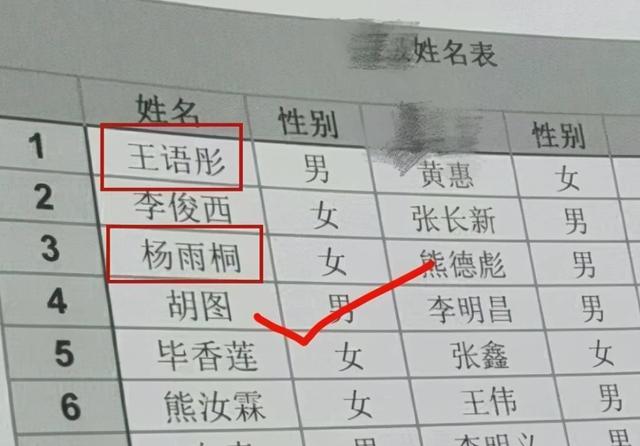 姓名表
姓名 性别 性别
1 王语彤 男 黄惠 女
2 李俊西 女 张长新 男
3 杨雨桐 女 熊德彪 男
4 胡图 男 李明昌 男
5 毕香莲 女 张鑫 女
6 熊汝霖 女 王伟 男
男